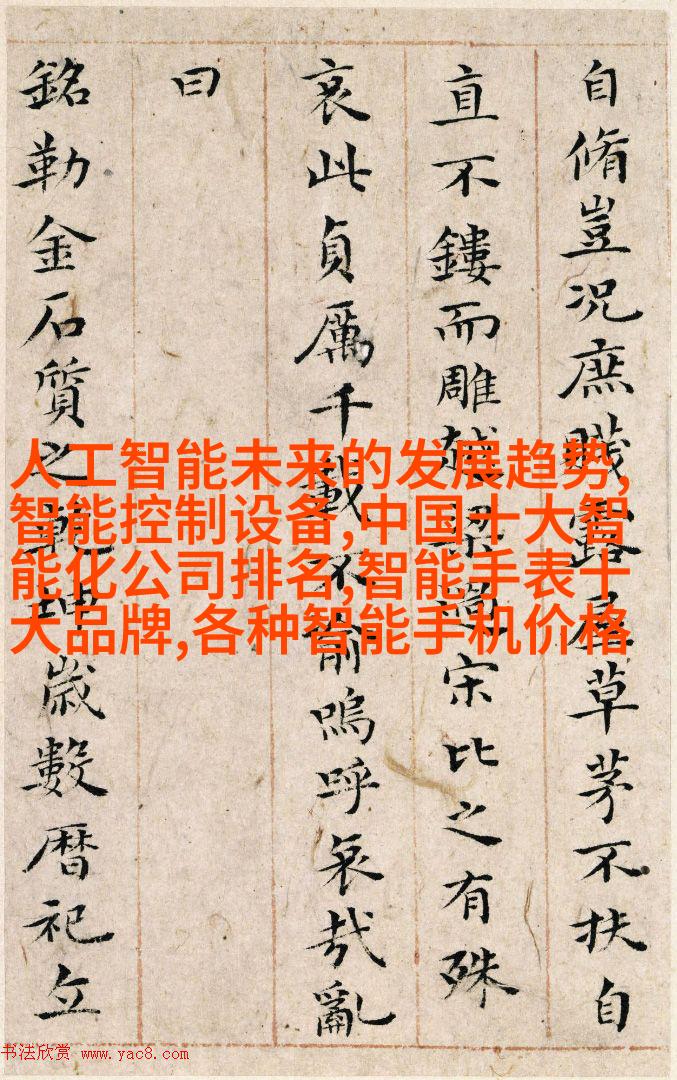 自脩豈况庶賤露屋草茅不扶自
直不鏤而雕越梁過宋比之有殊
哀此貞厲千載不渝嗚呼哀哉亂
曰
銘勒金石質之乾坤歲數暦祀立
人工智能未来的发展趋势,
智能控制设备,中国十大智
能化公司排名,智能手表十
大品牌,各种智能手机价格
书法欣赏 www.yac8.com